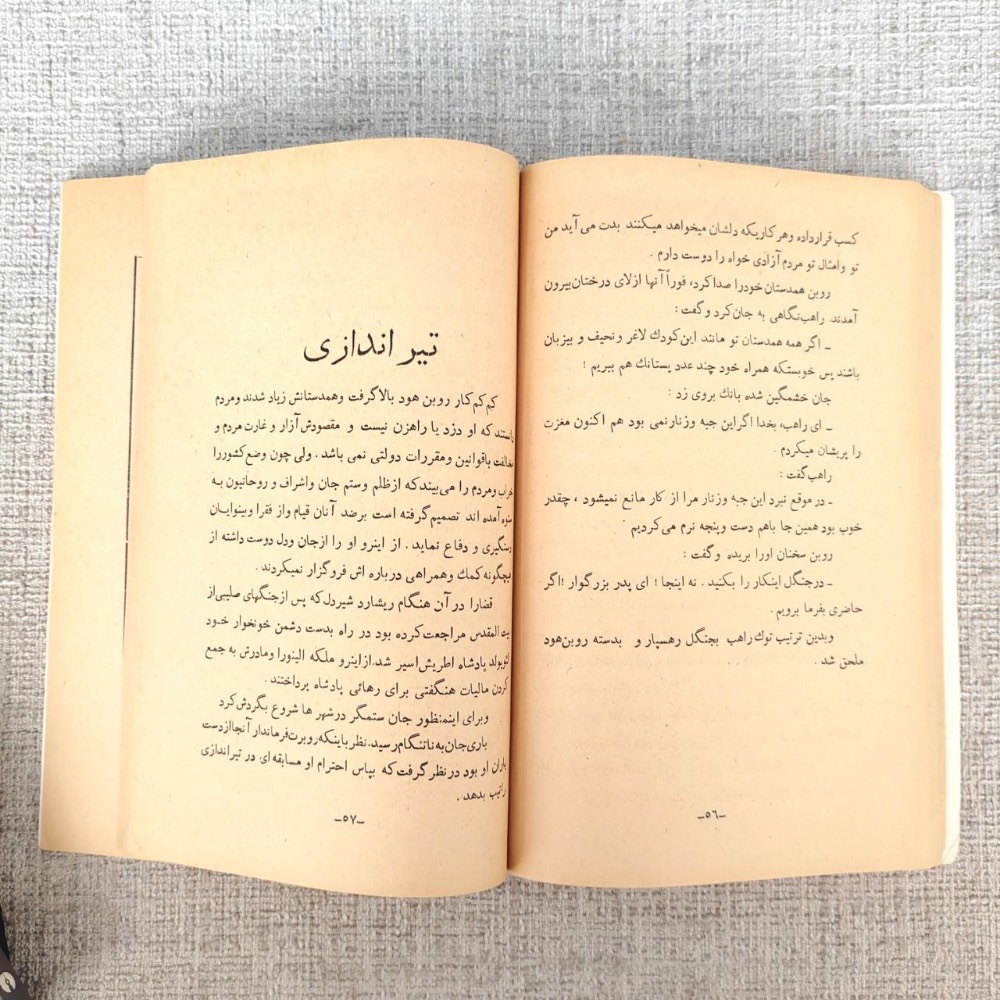 کسب قرارداده وهرکاریکه دلشان میخواهد میکنند بدت می آید من
تو وامثال تو مردم آزادی خواه را دوست دارم .
روبن همدستان خودرا صداکرد، فوراً آنها ازلای درختان بیرون
آمدند. راهب‌نگاهی به جان‌کرد وگفت :
ـ اگر همه همدستان تو مانند این‌کودك لاغر ونحیف و بیزبان
باشند پس خوبستکه همراه خود چند عدد پستانك هم ببریم !
جان خشمگین شده بانك بروی زد :
ـ ای راهب، بخدا اگراین جبه وزنارنمی بود هم اکنون مغزت
را پریشان میکردم .
راهب‌گفت :
ـ در موقع نبرد این جبه وزنار مرا از کار مانع نمیشود ، چقدر
خوب بود همین جا باهم دست وپنجه نرم می‌کردیم
روبن سخنان اورا بریده وگفت :
ـ درجنگل اینکار را بکنید . نه اینجا ! ای پدر بزرگوار !اگر
حاضری بفرما برویم .
وبدین ترتیب توك راهب بجنگل رهسپار و بدسته روبن‌هود
ملحق شد .
ـ٥٦ـ
تیر اندازی
کم‌کم‌کار روبن هود بالاگرفت وهمدستانش زیاد شدند ومردم
که او دزد یا راهزن نیست و مقصودش‌آزار و غارت مردم و
باقوانین ومقررات دولتی نمی باشد . ولی چون وضع‌کشوررا
ومردم را می‌بیندکه ازظلم وستم جان واشراف و روحانیون به
آمده اند تصمیم‌گرفته است برضد آنان قیام واز فقرا وبینوایان
و دفاع نماید . از اینرو او را ازجان ودل دوست داشته از
هیچگونه کمك وهمراهی درباره اش فروگزار نمیکردند .
قضارا درآن هنگام ریشارد شیردل‌که پس ازجنگهای صلیبی‌از
بیت المقدس مراجعت‌کرده بود در راه بدست دشمن خونخوار خود
لئوپولد پادشاه اطریش‌اسیر شد.ازاینرو ملکه الینورا ومادرش به جمع
کردن مالیات هنگفتی برای رهائی پادشاه پرداختند .
وبرای اینمنظور جان ستمگر درشهر ها شروع بگردش‌کرد
باری‌جان‌به‌ناتنگام‌رسید. نظر باینکه روبرت‌فرماندار آنجاازدست
یاران او بود در نظر گرفت‌که بپاس احترام او مسابقه‌ای در تیراندازی
ترتیب بدهد .
ـ٥٧ـ